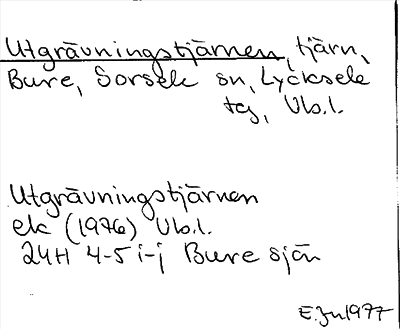 Utgrävningstjärnen, tjärn,
Bure, Sorsele sn, Lycksele
tg, Vb.l.
Utgrävningstjärnen
ek (1976) Vb.l.
24H 4-5 i-j Buresjön
1977